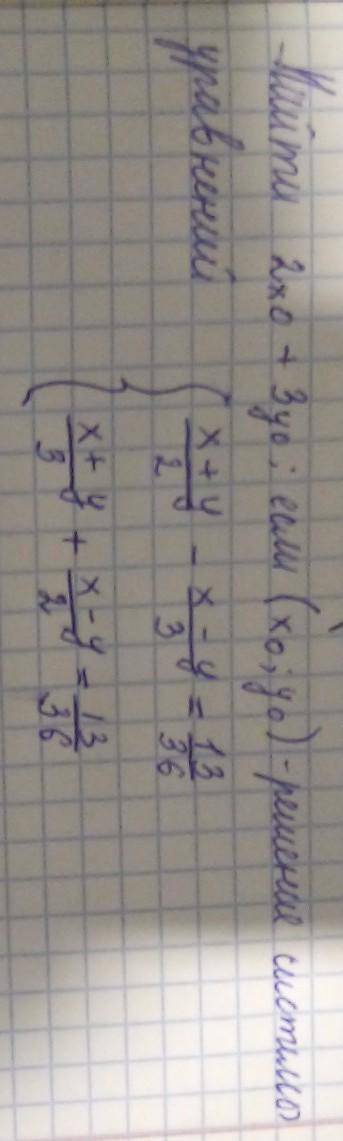 Найти 2x0 + 3y0; если (x0; y0) - решение системы
уравнений
{ (x + y)/2 - (x - y)/3 = 13/36
(x + y)/3 + (x - y)/2 = 13/36